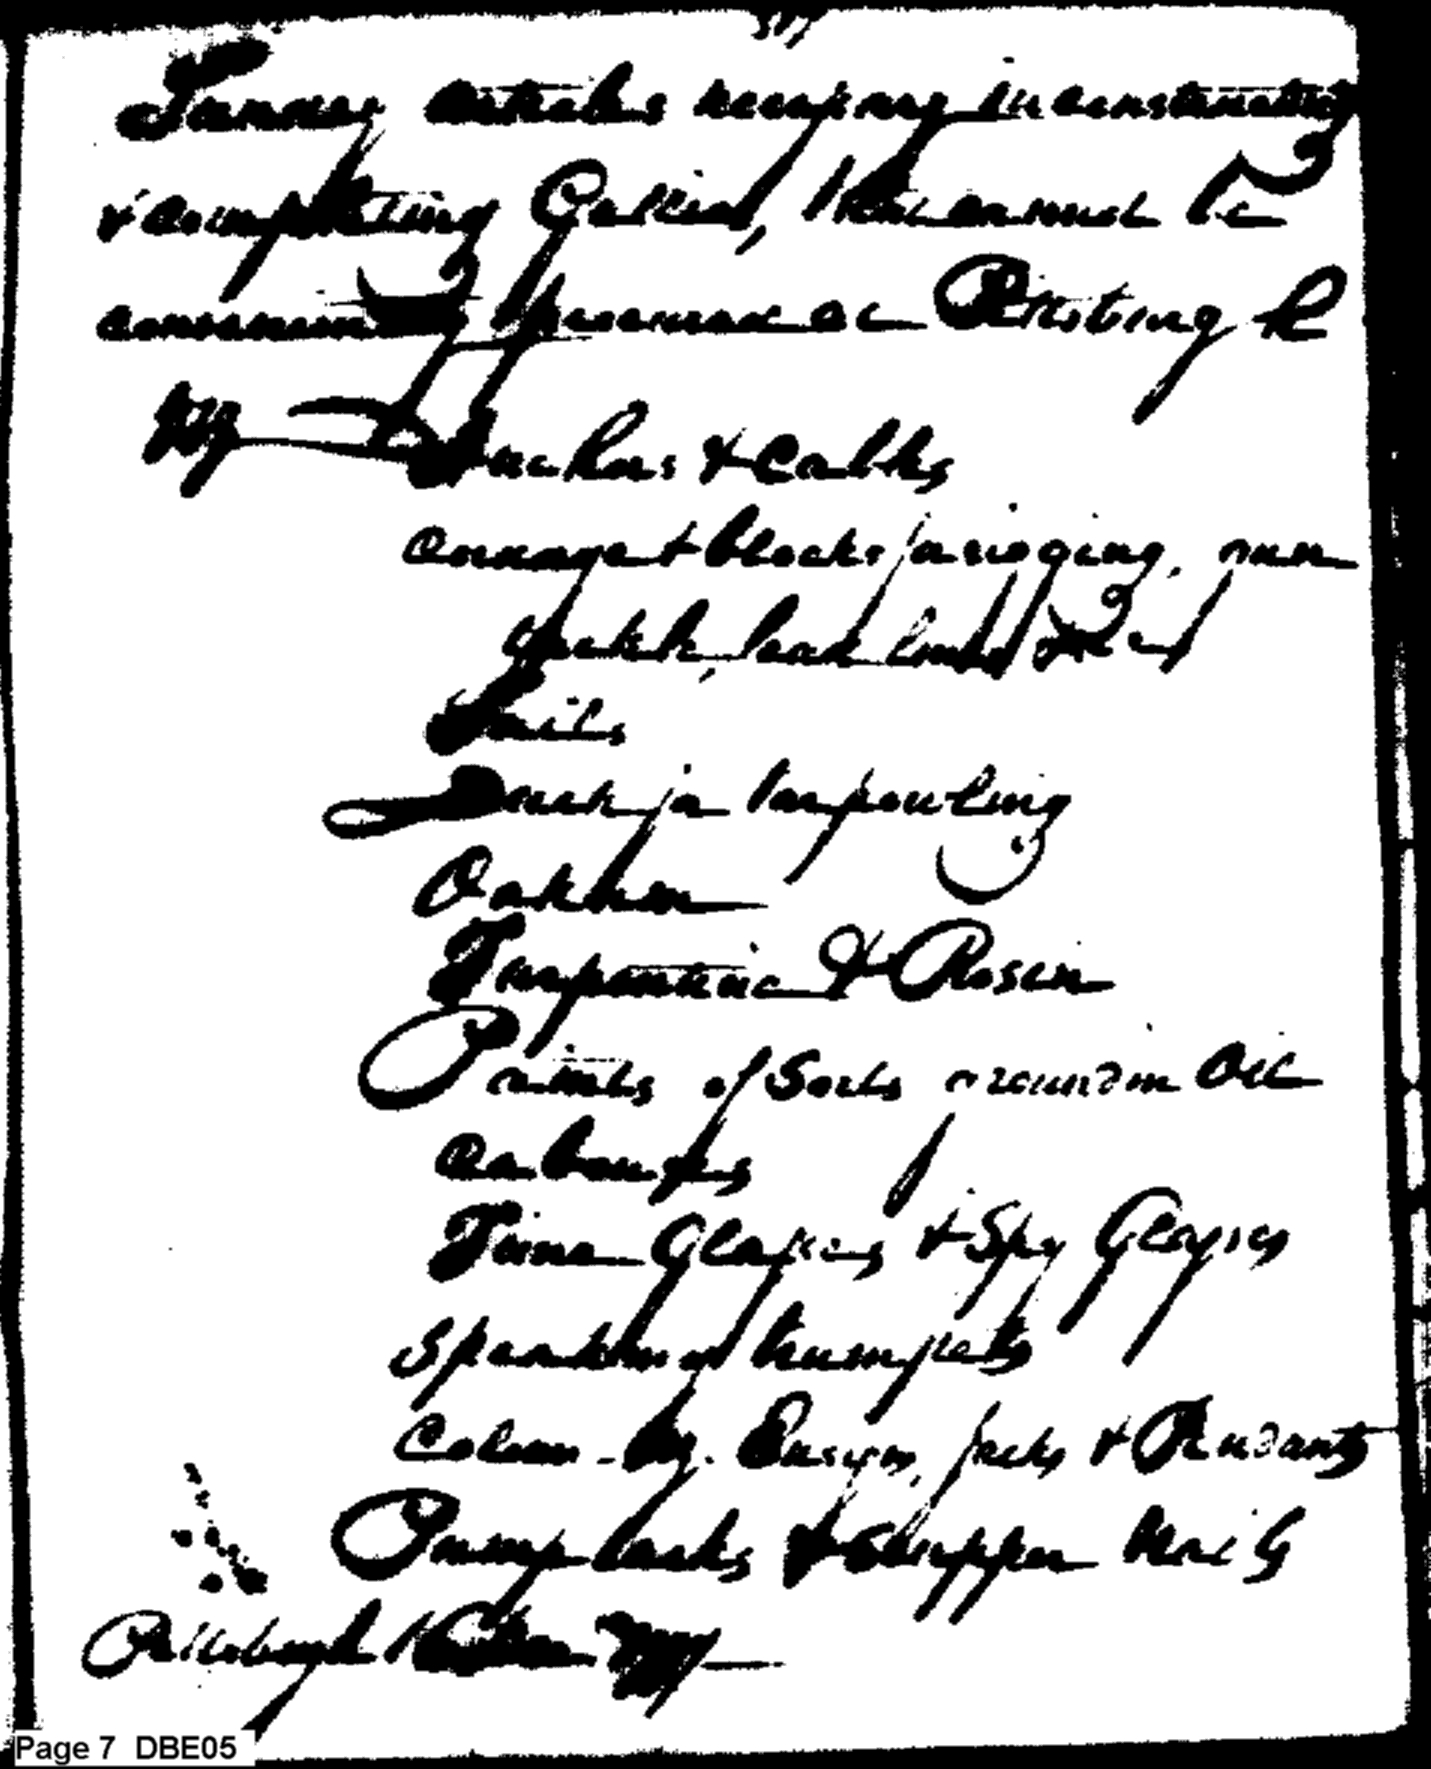 Sundry articles necessary in constructing
& compleating Gallies, that cannot be
conveniently procured at Pittsburgh
Viz Anchors & Cables
Cordage & blocks for rigging, gun
tackle, lead lines &c
Sails
Duck for tarpouling
Oakum
Turpentine & Rosin
Paints of Sorts ground in Oil
Cabouses
Time Glasses & Spy Glasses
Speaking trumpets
Colours - viz. Ensigns, jacks & Pendants
Pump tacks & scupper Nails
Pittsburgh October
Page 7 DBE05